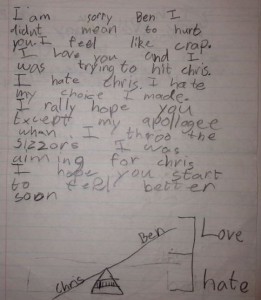 I am sorry Ben I
didnt mean to hurt
you. I feel like crap.
I love you and I
was trying to hit chris.
I hate chris. I hate
my choice I made.
I rally hope you
except my apollagee
whan I throo the
sizzors I was
aiming for chris
I hope you start
to feel better
soon
Ben
Love
Chris
hate